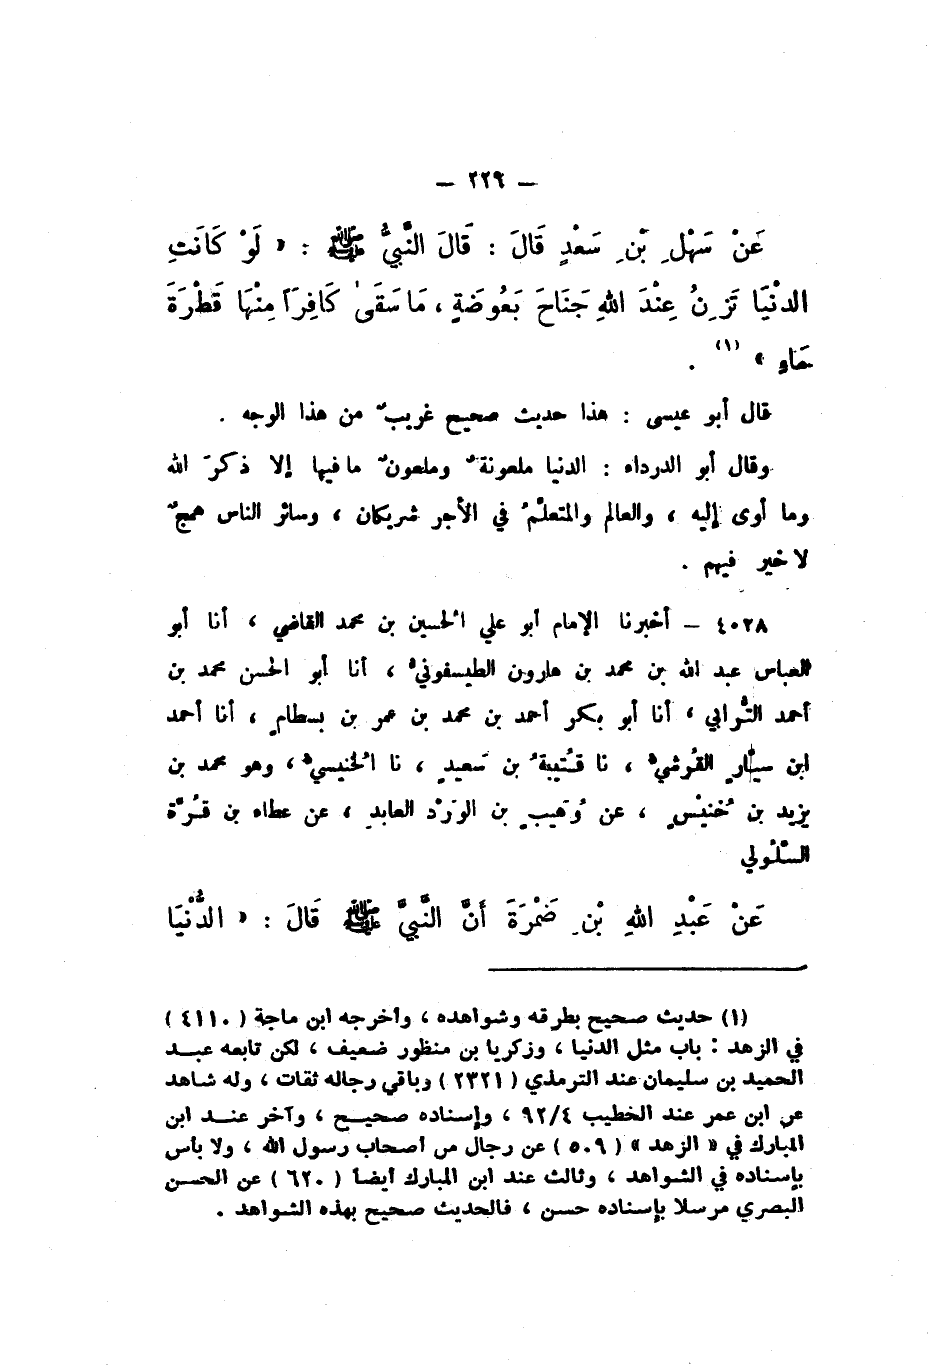 — ٢٢٩ —
عَنْ سَهْلِ بْنِ سَعْدٍ قَالَ : قَالَ النَّبِيُّ ﷺ : « لَوْ كَانَتِ
الدنْيَا تَزِنُ عِنْدَ اللهِ جَنَاحَ بَعُوضَةٍ ، مَا سَقَىٰ كَافِرَاً مِنْهَا قَطْرَةَ
مَاءٍ » (١) .
قال أبو عيسى : هذا حديث صحيح غريبٌ من هذا الوجه .
وقال أبو الدرداء : الدنيا ملعونةٌ وملعونٌ ما فيها إلا ذكرَ الله
وما أوى إليه ، والعالم والمتعلّمُ في الأجر شريكان ، وسائر الناس همجٌ
لا خير فيهم .
٤٠٢٨ — أخبرنا الإمام أبو علي الحسين بن محمد القاضي ، أنا أبو
العباس عبد الله بن محمد بن هارون الطيسفونيُّ ، أنا أبو الحسن محمد بن
أحمد التُّرابي ، أنا أبو بكر أحمد بن محمد بن عمر بن بسطامٍ ، أنا أحمد
ابن سيّارٍ القُرشيُّ ، نا قُتيبةُ بن سَعيدٍ ، نا الخُنيسيُّ ، وهو محمد بن
يزيد بن خُنيْسٍ ، عن وُهَيبِ بن الوَرْد العابدِ ، عن عطاء بن قُرَّة
السَّلُولي
عَنْ عَبْدِ اللهِ بْنِ ضَمْرَةَ أَنَّ النَّبِيَّ ﷺ قَالَ : « الدُّنْيَا
(١) حديث صحيح بطرقه وشواهده ، وأخرجه ابن ماجة ( ٤١١٠ )
في الزهد : باب مثل الدنيا ، وزكريا بن منظور ضعيف ، لكن تابعه عبد
الحميد بن سليمان عند الترمذي ( ٢٣٢١ ) وباقي رجاله ثقات ، وله شاهد
عن ابن عمر عند الخطيب ٩٢/٤ ، وإسناده صحيح ، وآخر عند ابن
المبارك في « الزهد » ( ٥٠٩ ) عن رجال من أصحاب رسول الله ، ولا بأس
بإسناده في الشواهد ، وثالث عند ابن المبارك أيضاً ( ٦٢٠ ) عن الحسن
البصري مرسلا بإسناده حسن ، فالحديث صحيح بهذه الشواهد .